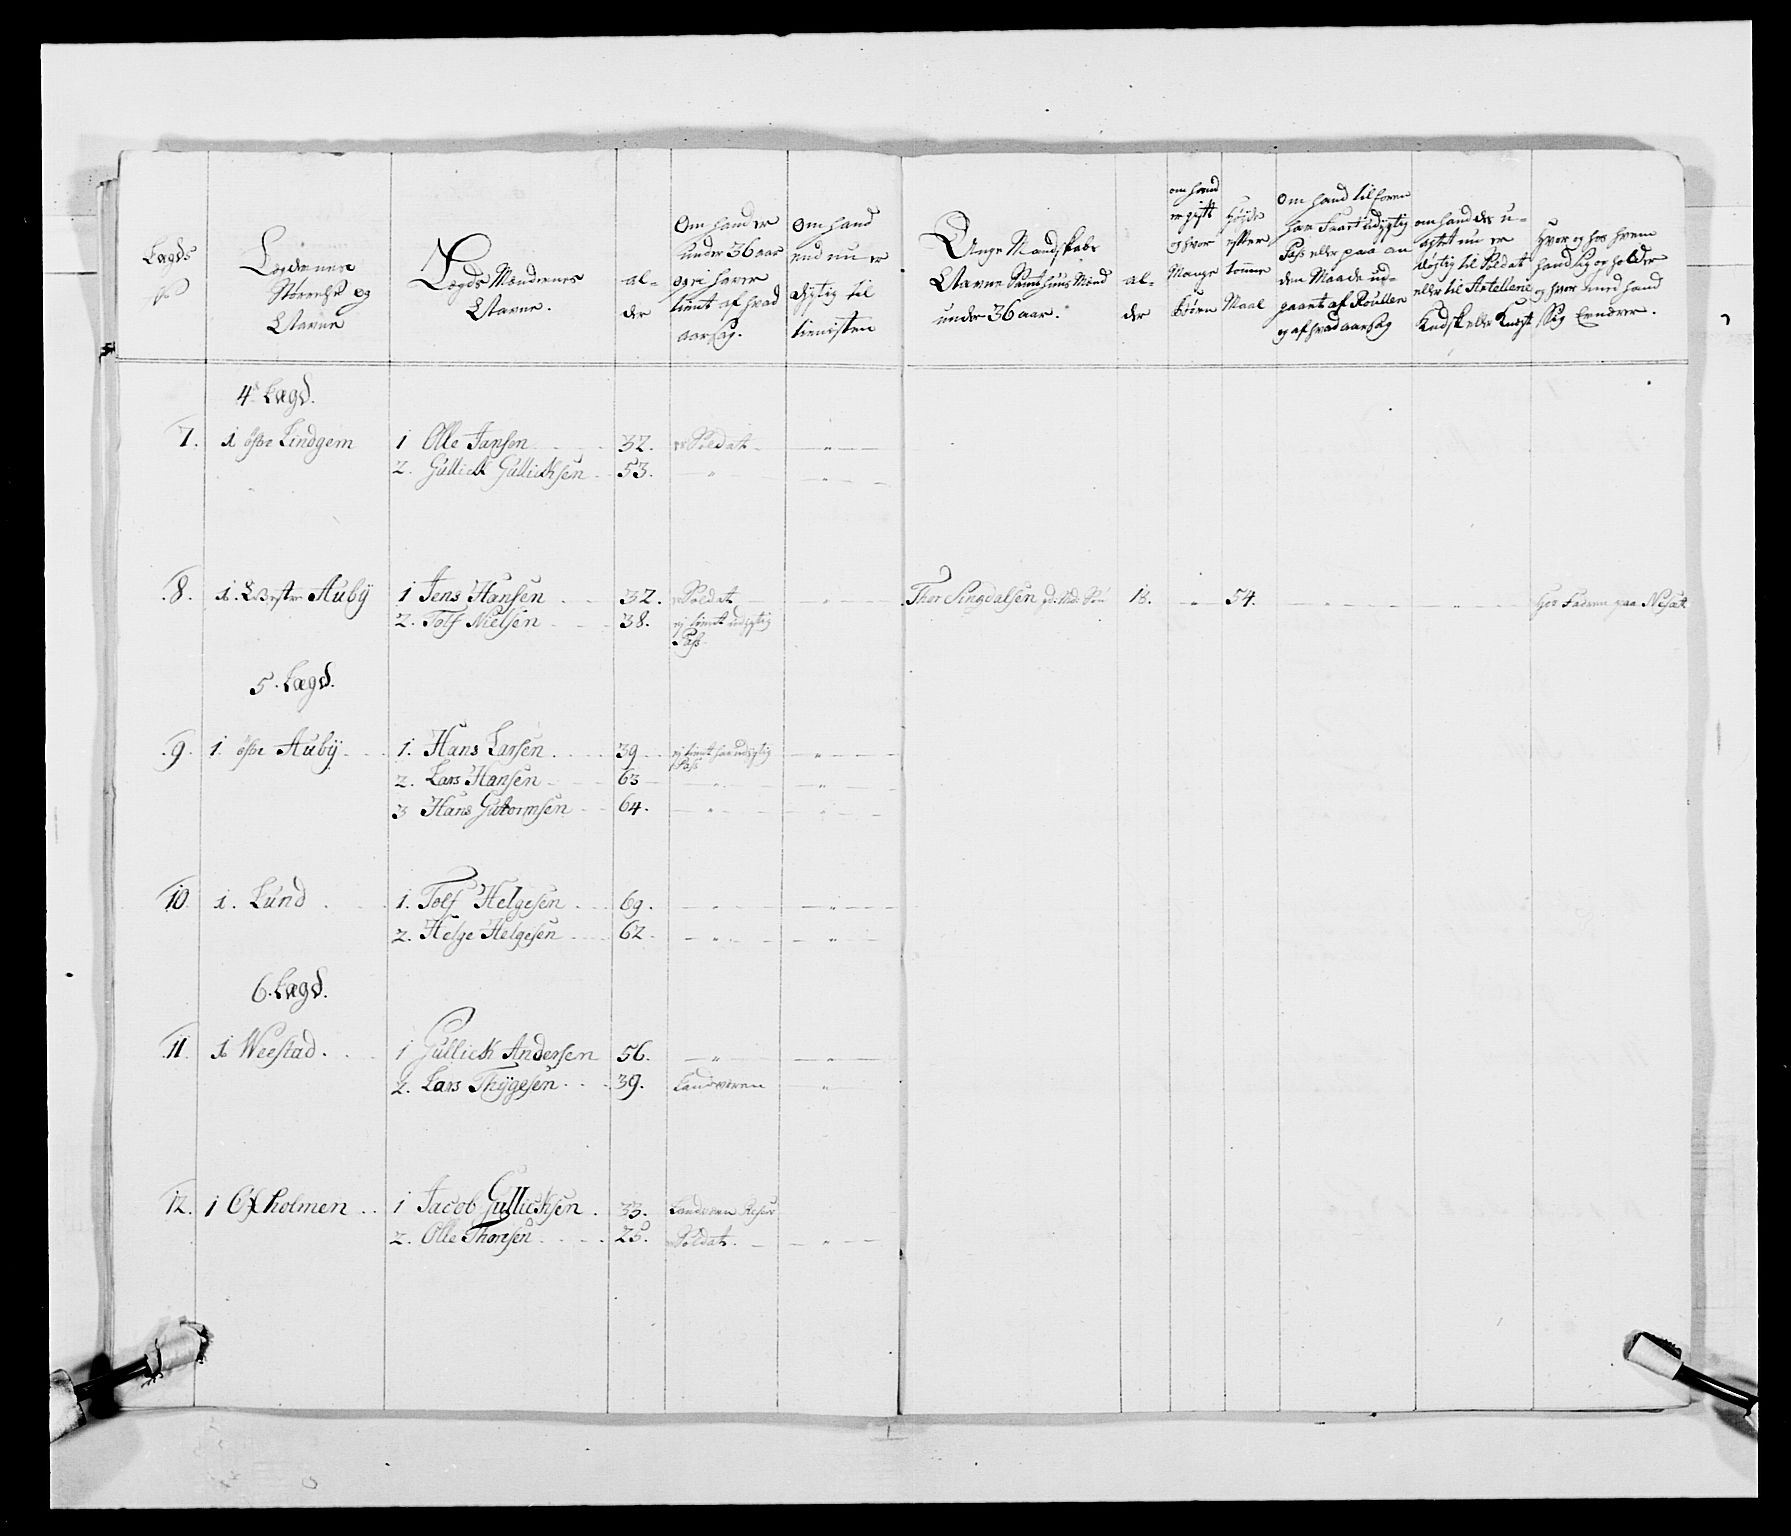 Lægds No
Lægdernes Størrelse og Navne
Lægds Mændenes Navne.
al-der
Om hand er under 36 aar og ei haver tient af hvad aarsag.
Om hand end nu er dygtig til tienesten
Unge Mandskabs Navne Samt huus Mænd under 36 aar.
al-der
om hand er gift og hvor Mange børn
Høyde efter tomme Maal
Om hand tilforen har Faaet udygtig Pass eller paa anden Maade udgaaet af Roullen og af hvad aarsag
om hand des uagtet nu er døgtig til Soldat eller til Artelleriet Kudsk eller Knegt
Hvor og hos hvem hand sig opholder og hvor med hand Sig Ernærer.
4de Lægd.
7. 1 østre Lindgem 1 Olle Jansen 32. er Soldat
2. Gullick Gullichsen 53.
8. 1. Vestre Auby 1 Jens Hansen 32. er Soldat Thor Singdalsen 18. 54. Hos Faderen paa
2. Tolf Nielsen 38. ej tient udygtig Pass.
5. Lægd.
9. 1. østre Auby 1. Hans Larsen 39 ej tient har udygtig Pass
2. Lars Hansen 63
3 Hans Guttormsen 64.
10. 1. Lund 1. Tolf Helgesen 69.
2. Helge Helgesen 62.
6. Lægd.
11. 1. Weestad 1 Gullick Andersen 56.
2. Lars Thygesen 39. Landværen
12. 1 Oxholmen 1 Jacob Gullichsen 33. Landværn Reserv
2. Olle Thorsen 25. er Soldat.